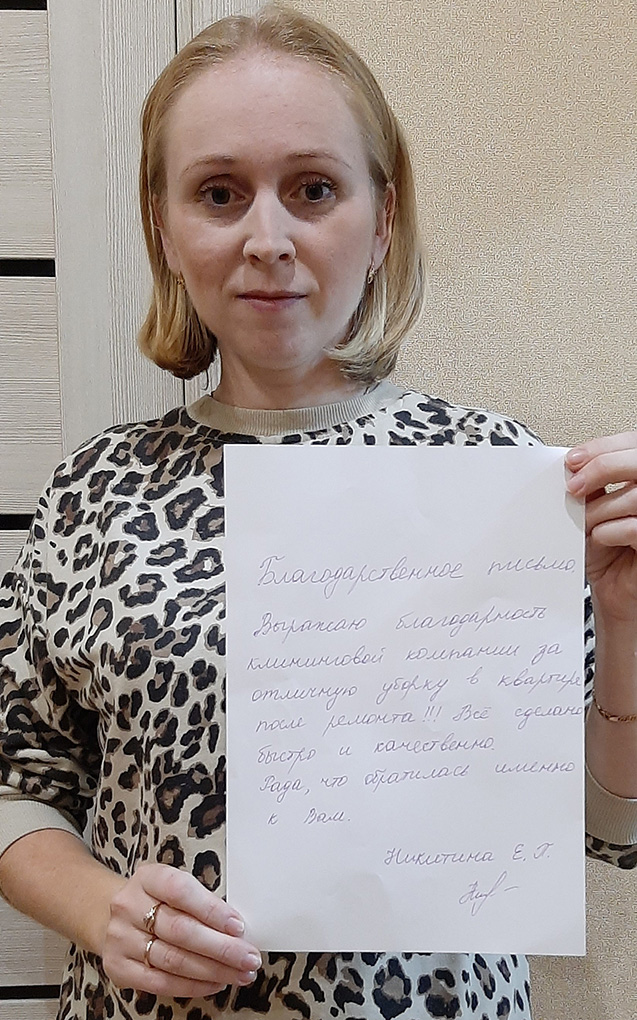 Благодарственное письмо
Выражаю благодарность
клининговой компании за
отличную уборку в квартире
после ремонта!!! Всё сделано
быстро и качественно.
Рада, что обратилась именно
к Вам.
Никитина Е. П.